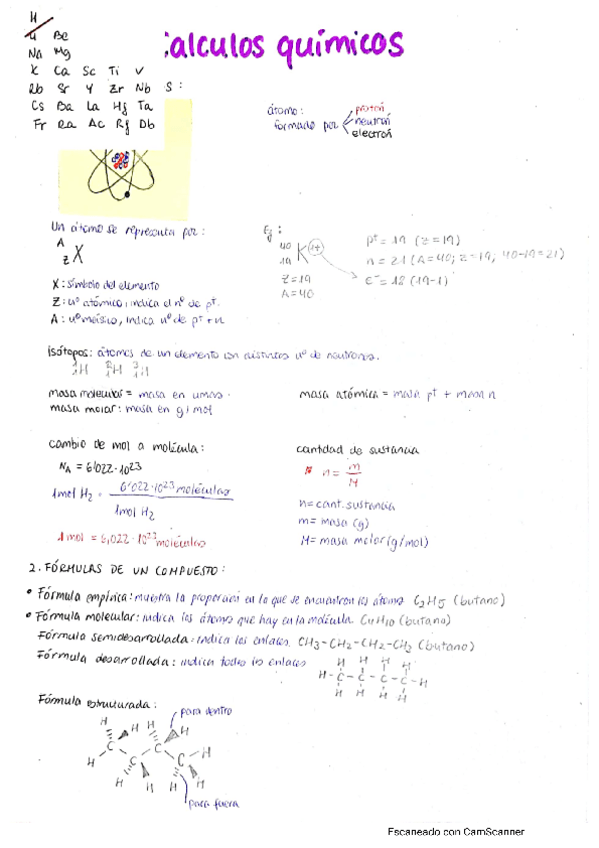 H
Li Be
Na Mg
K Ca Sc Ti V
Rb Sr Y Zr Nb S:
Cs Ba La Hf Ta
Fr Ra Ac Rf Db
Calculos químicos
átomo:
formado por protón
neutrón
electrón
Un átomo se representa por:
A
Z X
X: símbolo del elemento
Z: nº atómico, indica el nº de p+.
A: nº másico, indica nº de p+ + n
Ej:
40
19 K 1+
Z=19
A=40
p+ = 19 (z=19)
n = 21 (A=40; z=19; 40-19=21)
e- = 18 (19-1)
isótopos: átomos de un elemento con distintos nº de neutrones.
masa molecular = masa en umas.
masa molar: masa en g/mol
masa atómica = masa p+ + masa n
cambio de mol a molécula:
NA = 6'022·10²³
1mol H₂ = 6'022·10²³ moléculas
1mol H₂
1 mol = 6,022·10²³ moléculas
cantidad de sustancia
n = m
M
n= cant. sustancia
m= masa (g)
M= masa molar (g/mol)
2. FÓRMULAS DE UN COMPUESTO:
• Fórmula empírica: muestra la proporción en lo que se encuentran los átomos C₂H₅ (butano)
• Fórmula molecular: indica los átomos que hay en la molécula. C₄H₁₀ (butano)
Fórmula semidesarrollada: indica los enlaces. CH₃-CH₂-CH₂-CH₃ (butano)
Fórmula desarrollada: indica todos los enlaces
H H H H
H-C-C-C-C-H
H H H H
Fórmula estructurada:
para dentro
H H H H
C C C C H
H H H H H
para fuera
Escaneado con CamScanner